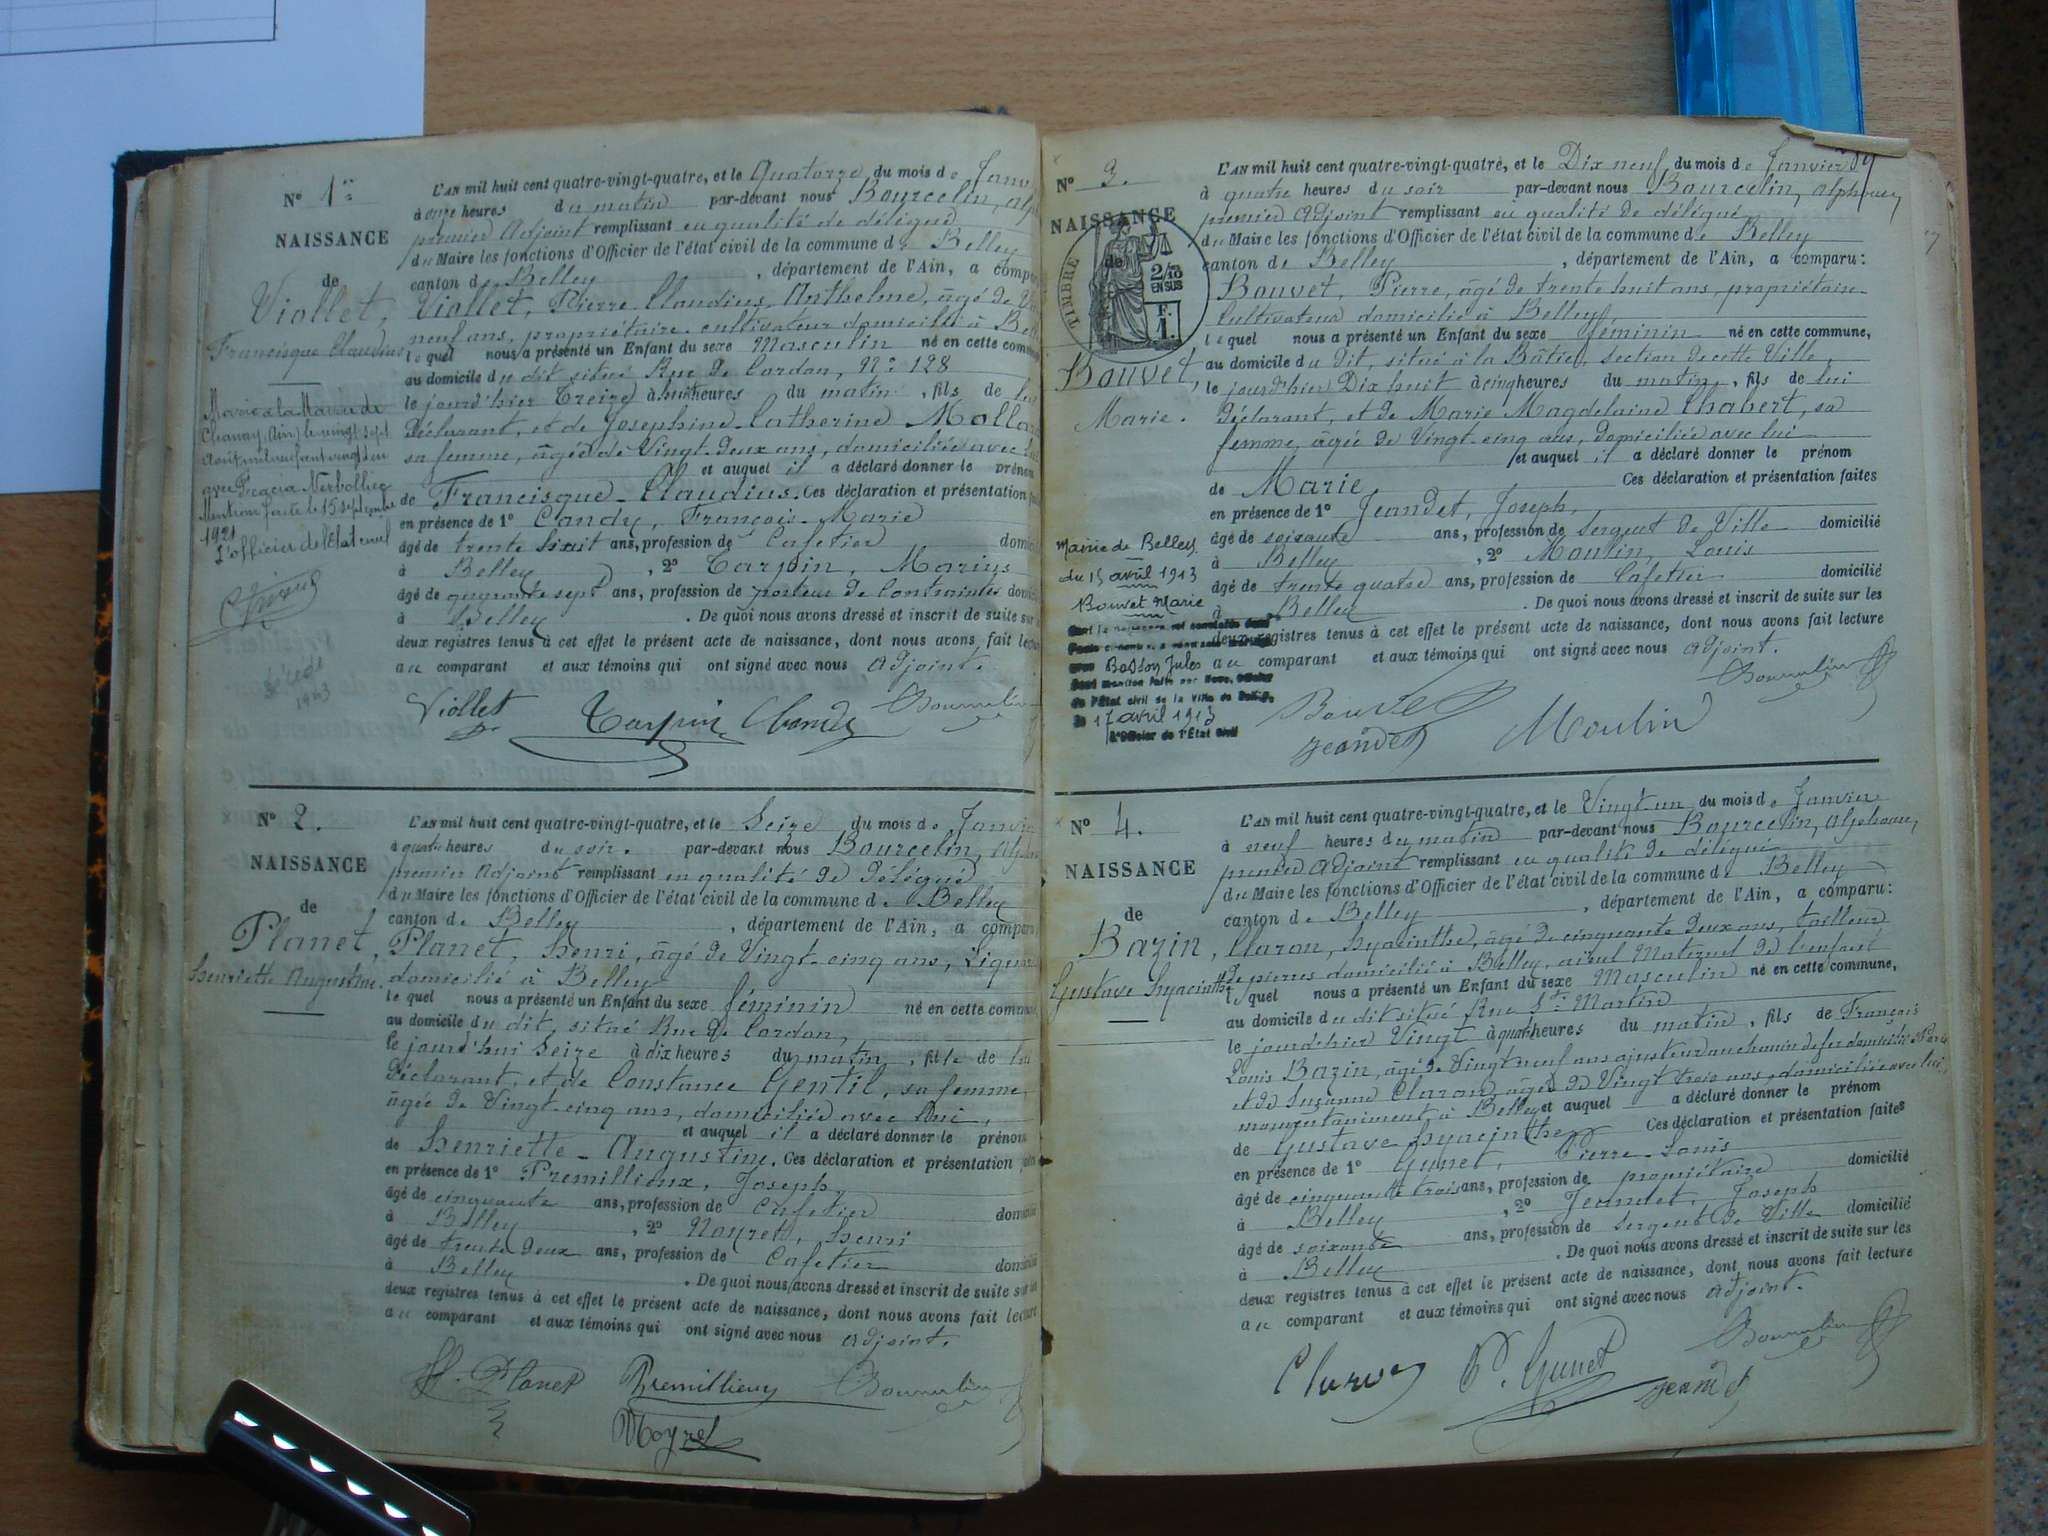 N° 1er
NAISSANCE
de
Viollet,
Francisque Claudius
Marié à la Mairie de
Chanay (Ain) le vingt sept
Août mil neuf cent vingt un
avec
Mention faite le 15 septembre
1921
L'officier de l'Etat civil
L'AN mil huit cent quatre-vingt-quatre, et le Quatorze du mois de Janv
à onze heures du matin par-devant nous Bourcelin, Alp
premier Adjoint remplissant en qualité de délégué
du Maire les fonctions d'Officier de l'état civil de la commune de Belley
canton de Belley, département de l'Ain, a compar
Viollet, Pierre Claudius Anthelme, âgé de
neuf ans, propriétaire cultivateur domicilié à Bell
lequel nous a présenté un Enfant du sexe Masculin né en cette commu
au domicile du dit situé Rue de Cordon, N° 128
le jourd'hier Treize à huit heures du matin, fils de lui
déclarant, et de Josephine Catherine Mollar
sa femme, âgée de Vingt-Deux ans, domiciliée avec lui
et auquel il a déclaré donner le prénom
de Francisque-Claudius. Ces déclaration et présentation
en présence de 1° Candy, François-Marie
âgé de trente huit ans, profession de Cafetier domici
à Belley, 2° Tarpin, Marius
âgé de quarante sept ans, profession de porteur de Contraintes domi
à Belley. De quoi nous avons dressé et inscrit de suite sur
deux registres tenus à cet effet le présent acte de naissance, dont nous avons fait lectu
au comparant et aux témoins qui ont signé avec nous Adjoint.
Viollet Tarpin
N° 2.
NAISSANCE
de
Planet,
Henriette Augustine.
L'AN mil huit cent quatre-vingt-quatre, et le Seize du mois de Janvie
à quatre heures du soir. par-devant nous Bourcelin, Alphon
premier Adjoint remplissant en qualité de délégué
du Maire les fonctions d'Officier de l'état civil de la commune de Belley
canton de Belley, département de l'Ain, a compar
Planet, Henri, âgé de Vingt-cinq ans,
domicilié à Belley
lequel nous a présenté un Enfant du sexe féminin né en cette commun
au domicile du dit, situé Rue de Cordon,
le jourd'hui Seize à dix heures du matin, fille de lui
déclarant, et de Constance Gentil, sa femme,
âgée de Vingt-cinq ans, domiciliée avec lui,
et auquel il a déclaré donner le prénom
de Henriette-Augustine. Ces déclaration et présentation
en présence de 1° Premillieux, Joseph,
âgé de cinquante ans, profession de Cafetier domicilié
à Belley, 2° Moyret, Henri
âgé de trente deux ans, profession de Cafetier domicilié
à Belley. De quoi nous avons dressé et inscrit de suite sur
deux registres tenus à cet effet le présent acte de naissance, dont nous avons fait lecture
au comparant et aux témoins qui ont signé avec nous Adjoint.
H. Planet Premillieux
Moyret
N° 3.
NAISSANCE
de
TIMBRE
2/10
EN SUS
F.
1.
Bouvet,
Marie.
Mairie de Belley
du 15 avril 1913
Bouvet Marie
avec Bosson Jules
de l'Etat civil de la Ville de
le 17 avril 1913
L'Officier de l'Etat Civil
L'AN mil huit cent quatre-vingt-quatre, et le Dix neuf du mois de Janvier
à quatre heures du soir par-devant nous Bourcelin, Alphonse,
premier Adjoint remplissant en qualité de délégué
du Maire les fonctions d'Officier de l'état civil de la commune de Belley
canton de Belley, département de l'Ain, a comparu:
Bouvet, Pierre, âgé de trente huit ans, propriétaire
Cultivateur domicilié à Belley,
lequel nous a présenté un Enfant du sexe féminin né en cette commune,
au domicile du dit, situé à la Bâtie, section de cette Ville,
le jourd'hier Dix huit à cinq heures du matin, fils de lui
déclarant, et de Marie Magdelaine Chabert, sa
femme, âgée de Vingt-cinq ans, domiciliée avec lui
et auquel il a déclaré donner le prénom
de Marie, Ces déclaration et présentation faites
en présence de 1° Jeandet, Joseph,
âgé de soixante ans, profession de Sergent de Ville domicilié
à Belley, 2° Moulin, Louis
âgé de trente quatre ans, profession de Cafetier domicilié
à Belley. De quoi nous avons dressé et inscrit de suite sur les
deux registres tenus à cet effet le présent acte de naissance, dont nous avons fait lecture
au comparant et aux témoins qui ont signé avec nous Adjoint.
Bouvet
Jeandet Moulin
N° 4.
NAISSANCE
de
Bazin,
Gustave Hyacinthe
L'AN mil huit cent quatre-vingt-quatre, et le Vingt-un du mois de Janvier
à neuf heures du matin par-devant nous Bourcelin, Alphonse,
premier Adjoint remplissant en qualité de délégué
du Maire les fonctions d'Officier de l'état civil de la commune de Belley
canton de Belley, département de l'Ain, a comparu:
Claron, Hyacinthe, âgé de cinquante deux ans, tailleur
de pierres domicilié à Belley, aieul Maternel de l'enfant
lequel nous a présenté un Enfant du sexe Masculin né en cette commune,
au domicile du dit situé Rue St Martin
le jourd'hier Vingt à quatre heures du matin, fils de François
Louis Bazin, âgé de Vingt neuf ans ajusteur au chemin de fer domicilié à Paris
et de Suzanne Claron, âgée de Vingt trois ans, domiciliée avec lui,
momentanément à Belley et auquel a déclaré donner le prénom
de Gustave Hyacinthe Ces déclaration et présentation faites
en présence de 1° Gunet, Pierre-Louis
âgé de cinquante trois ans, profession de propriétaire domicilié
à Belley, 2° Jeandet, Joseph
âgé de soixante ans, profession de Sergent de Ville domicilié
à Belley. De quoi nous avons dressé et inscrit de suite sur les
deux registres tenus à cet effet le présent acte de naissance, dont nous avons fait lecture
au comparant et aux témoins qui ont signé avec nous Adjoint.
Claron P. Gunet Jeandet